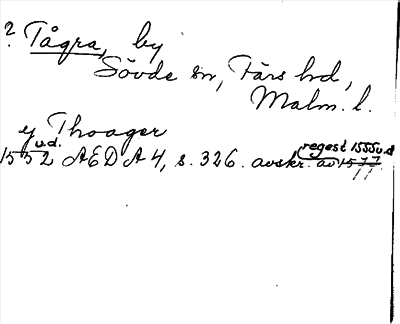 ? Tågra, by
Sövde sn, Färs hd,
Malm. l.
ej Thoager
u.d. regest 1555 u.d
1552 AEDA 4, s. 326. avskr. av 1577